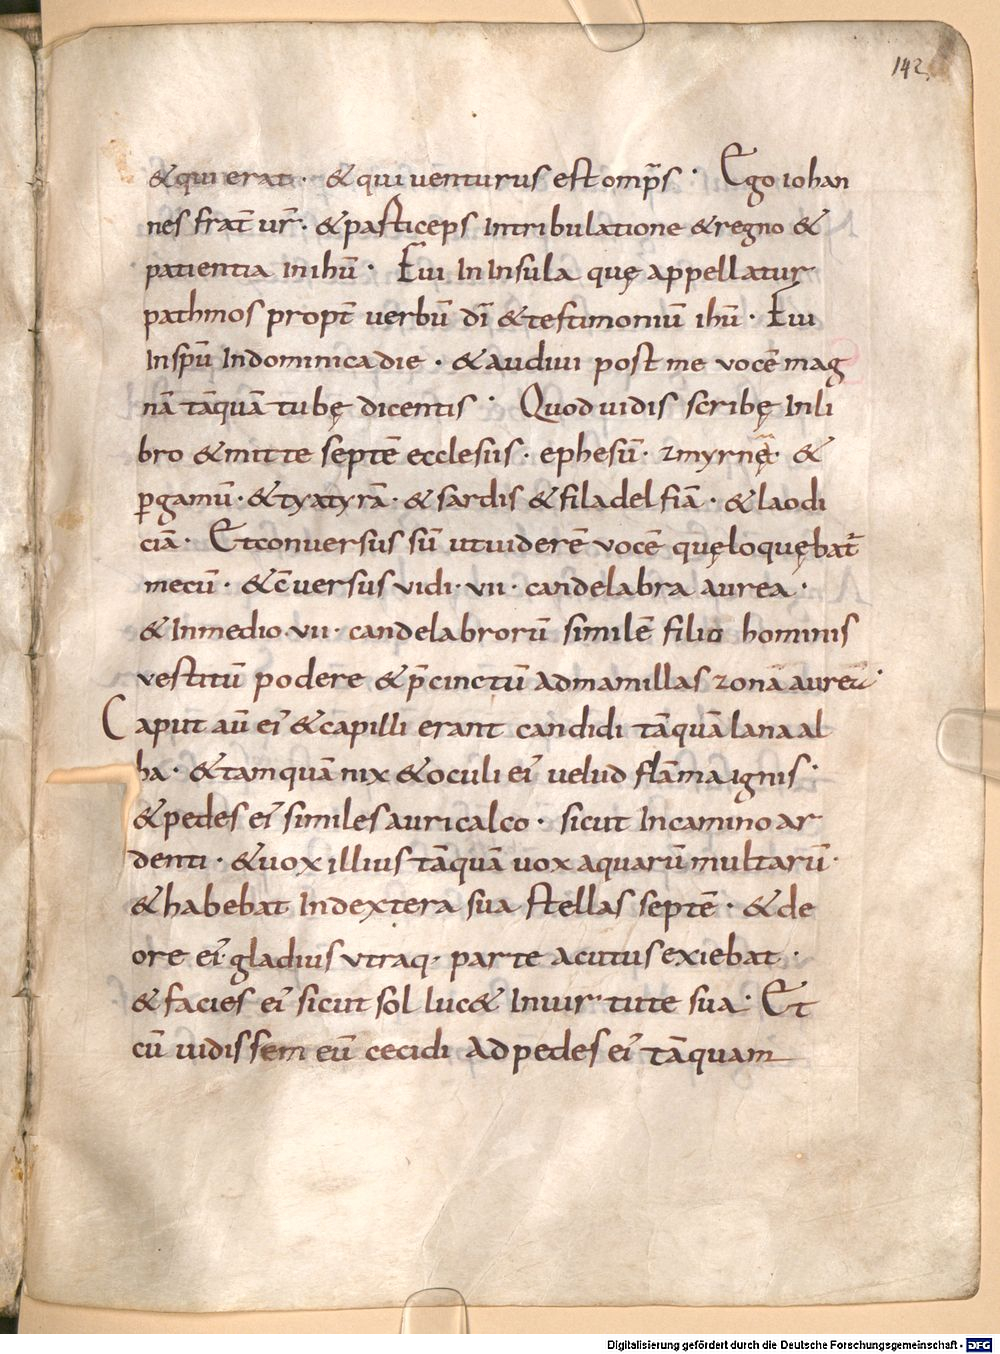 142.
& qui erat · & qui uenturus est omp̄s · Ego iohan
nes frat̄ ur̄ · & particeps Intribulatione & regno &
patientia In ihū · Fui In Insula quę appellatur
pathmos propt̄ uerbū dī & testimoniū ihū · Fui
In spū Indominica die · & audiui post me uocē mag
nā tāquā tubę dicentis · Quod uidis scribę In li
bro & mitte septē ecclesiis · ephesū · zmyrnę · &
ꝑgamū · & tyatyrā · & sardis & filadelfiā · & laodi
ciā · Et conuersus sū ut uiderē uocē quę loquębat̄
mecū · & c̄uersus vidi · vii · candelabra aurea ·
& In medio · vii · candelabrorū similē filio hominis
vestitū podere & p̄cinctū ad mamillas zonā aureā ·
Caput aū ei' & capilli erant candidi tāquā lana al
ba · & tamquā nix & oculi ei' uelud flāma ignis ·
& pedes ei' similes auricalco · sicut In camino ar
denti · & uox illius tāquā uox aquarū multarū ·
& habebat In dextera sua stellas septē · & de
ore ei' gladius utraq· parte acutus exiebat ·
& facies ei' sicut sol luc& In uirtute sua · Et
cū uidissem eū cecidi ad pedes ei' tāquam
Digitalisierung gefördert durch die Deutsche Forschungsgemeinschaft - DFG